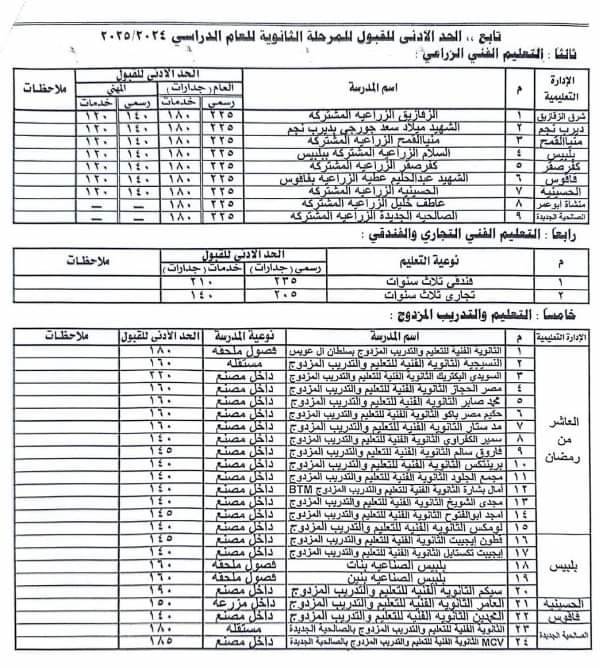 تابع ،، الحد الادنى للقبول للمرحلة الثانوية للعام الدراسي ٢٠٢٥/٢٠٢٤
ثالثا : التعليم الفني الزراعي :
الإدارة التعليمية م اسم المدرسة الحد الادنى للقبول ملاحظات
العام (جدارات) المهني
رسمي خدمات رسمي خدمات
شرق الزقازيق ١ الزقازيق الزراعيه المشتركه ٢٢٥ ١٨٠ ١٤٠ ١٢٠
ديرب نجم ٢ الشهيد ميلاد سعد جورجى بديرب نجم ٢٢٥ ١٨٠ ١٤٠ ١٢٠
منياالقمح ٣ منياالقمح الزراعيه المشتركه ٢٢٥ ١٨٠ ١٤٠ ١٢٠
بلبيس ٤ السلام الزراعيه المشتركه ببلبيس ٢٢٥ ١٨٠ ١٤٠ ١٢٠
كفرصقر ٥ كفرصقر الزراعيه المشتركه ٢٢٥ ١٨٠ ١٤٠ ١٢٠
فاقوس ٦ الشهيد عبدالحليم عطيه الزراعيه بفاقوس ٢٢٥ ١٨٠ ١٤٠ ١٢٠
الحسينية ٧ الحسينيه الزراعيه المشتركه ٢٢٥ ١٨٠ ١٤٠ ١٢٠
منشاة ابوعمر ٨ عاطف خليل الزراعيه المشتركه ٢٢٥ ١٨٠ — —
الصالحية الجديدة ٩ الصالحيه الجديدة الزراعيه المشتركه ٢٢٥ ١٨٠ — —
رابعا : التعليم الفني التجاري والفندقي :
م نوعية التعليم الحد الادنى للقبول ملاحظات
رسمي (جدارات) خدمات (جدارات)
١ فندقى ثلاث سنوات ٢٣٥ ٢١٠
٢ تجارى ثلاث سنوات ٢٠٥ ١٤٠
خامسا : التعليم والتدريب المزدوج :
الإدارة التعليمية م اسم المدرسة نوعية المدرسة الحد الادنى للقبول ملاحظات
العاشر من رمضان
١ الثانوية الفنية للتعليم والتدريب المزدوج بسلطان ال عويس فصول ملحقه ١٨٠
٢ النسيجية الثانوية الفنية للتعليم والتدريب المزدوج مستقله ١٦٠
٣ السويدى اليكتريك الثانوية الفنية للتعليم والتدريب المزدوج داخل مصنع ٢٢٠
٤ مصر الحجاز الثانوية الفنية للتعليم والتدريب المزدوج داخل مصنع ١٦٠
٥ محمد صابر الثانوية الفنية للتعليم والتدريب المزدوج داخل مصنع ١٦٠
٦ حكيم مصر باكو الثانوية الفنية للتعليم والتدريب المزدوج داخل مصنع ١٦٠
٧ مد ستار الثانوية الفنية للتعليم والتدريب المزدوج داخل مصنع ١٦٠
٨ سمير الكفراوى الثانوية الفنية للتعليم والتدريب المزدوج داخل مصنع ١٤٠
٩ فاروق سالم الثانوية الفنية للتعليم والتدريب المزدوج داخل مصنع ١٤٥
١٠ برينتكس الثانوية الفنية للتعليم والتدريب المزدوج داخل مصنع ١٤٠
١١ مجمع الجلود الثانوية الفنية للتعليم والتدريب المزدوج داخل مصنع ١٤٠
١٢ امال بشارة الثانوية الفنية للتعليم والتدريب المزدوج BTM داخل مصنع ١٤٠
١٣ مجدى الشويخ الثانوية الفنية للتعليم والتدريب المزدوج داخل مصنع ١٤٠
١٤ امجد ابوالفتوح الثانوية الفنية للتعليم والتدريب المزدوج داخل مصنع ١٤٥
١٥ لومكس الثانوية الفنية للتعليم والتدريب المزدوج داخل مصنع ١٤٠
بلبيس
١٦ قطون إيجيبت الثانوية الفنية للتعليم والتدريب المزدوج داخل مصنع ١٤٥
١٧ إيجيبت تكستايل الثانوية الفنية للتعليم والتدريب المزدوج داخل مصنع ١٤٠
١٨ بلبيس الصناعيه بنات فصول ملحقه ١٦٠
١٩ بلبيس الصناعيه بنين فصول ملحقه ١٦٠
٢٠ سيكم الثانوية الفنية للتعليم والتدريب المزدوج داخل مصنع ١٩٠
الحسينية ٢١ العامر الثانوية الفنية للتعليم والتدريب المزدوج داخل مزرعه ١٥٠
فاقوس ٢٢ الثانوية الفنية للتعليم والتدريب المزدوج داخل مصنع ١٤٠
الصالحية الجديدة
٢٣ الثانوية الفنية للتعليم والتدريب المزدوج بالصالحية الجديدة مستقله ١٨٠
٢٤ MCV الثانوية الفنية للتعليم والتدريب المزدوج بالصالحية الجديدة داخل مصنع ١٨٥